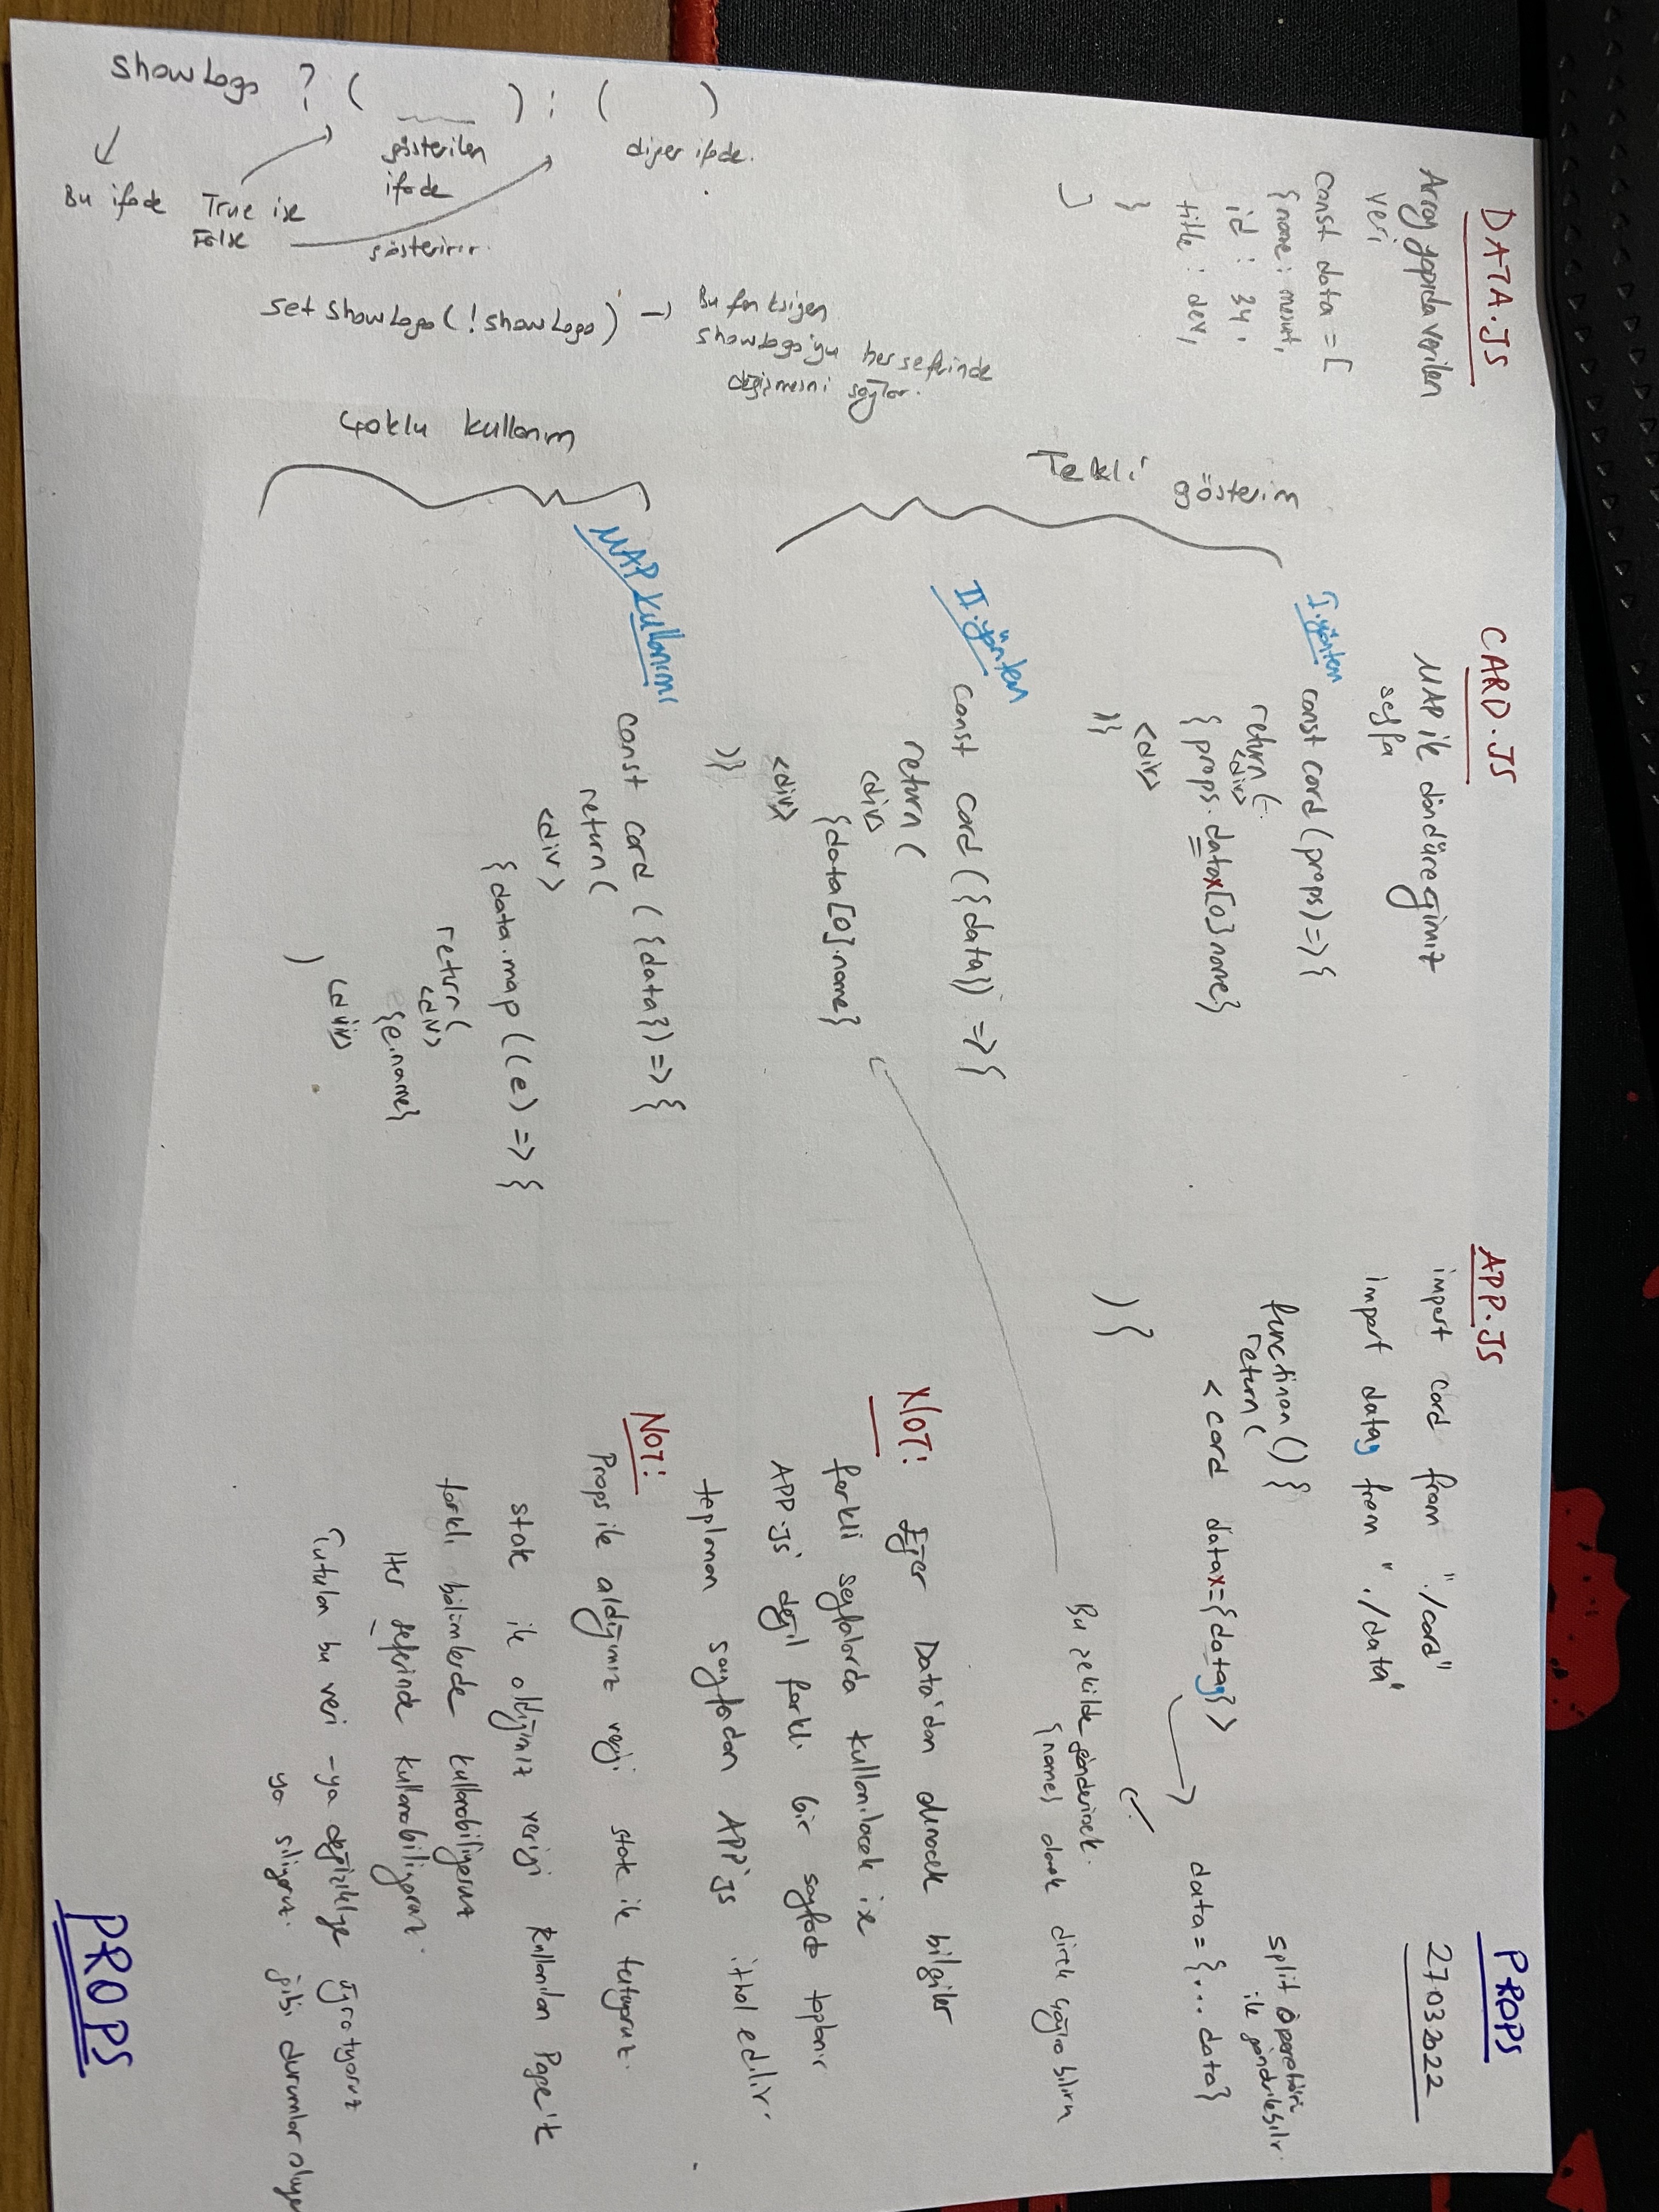 PROPS
27032022
DATA.JS
Array yapıda verilen
veri
const data = [
{name: mesut,
id : 34,
title : dev,
}
]
CARD.JS
MAP ile döndüreğimiz
sayfa
I.yöntem
const card (props) => {
return (
<div>
{props.datax[0].name}
<div>
)}
Tekli gösterim
II.yöntem
const card ({data}) => {
return (
<div>
{data[0].name}
<div>
)}
MAP kullanımı
Çoklu kullanım
const card ({data}) => {
return (
<div>
{data.map((e) => {
return (
<div>
{e.name}
<div>
)
APP.JS
import card from "./card"
import datag from "./data"
functinon () {
return (
<card datax={datag}>
)}
split operatörü
ile gönderilebilir
data = {... data}
Bu şekilde gönderirsek
{name} olarak direk yazılabilir
NOT: Eğer Data'dan alınacak bilgiler
farklı sayfalarda kullanılacak ise
APP.JS değil farklı bir sayfada toplanır
toplanan sayfadan APP'JS ithal edilir.
NOT:
Props ile aldığımız veriyi state ile tutuyoruz.
state ile aldığımız veriyi kullanılan Page'in
farklı bölümlerde kullanabiliyoruz
Her seferinde kullanabiliyoruz.
Tutulan bu veri - ya değişikliye uğratıyoruz
ya siliyoruz. gibi durumlar oluyor
showLogo ? ( ) : ( )
gösterilen
ifade
diğer ifade.
Bu ifade True ise
False
gösteririr.
setShowLogo(!showLogo) → Bu fonksiyon
showlogo'yu her seferinde
değişmesini sağlar.
PROPS